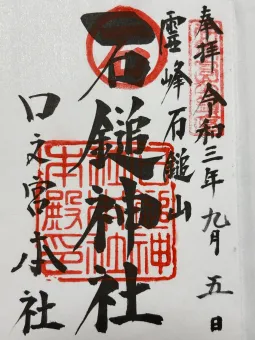 奉拝 令和三年九月五日
霊峰石鎚山
石鎚神社
口之宮本社